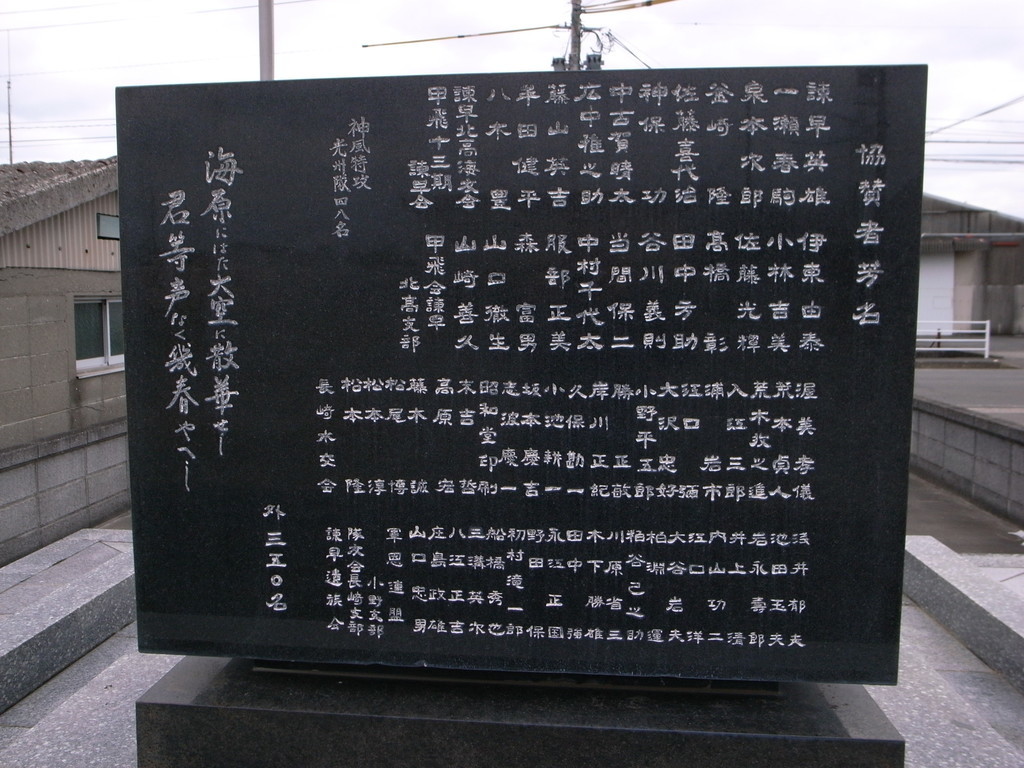 協賛者芳名
諫早英雄
一瀬春駒
泉本次郎
釜崎隆
佐藤喜代治
神保功
中古賀晴太
広中雅之助
藤山英吉
半田健平
八木豊
諫早北高海交会
甲飛十三期
諫早会
伊東由泰
小林吉美
佐藤光輝
高橋彰
田中方助
谷川義則
当間保二
中村千代太
服部正美
森富男
山口徹生
山崎善久
甲飛会諫早
北高支部
神風特攻
光州隊四八名
渥美孝儀
荒本貞人
荒木牧之進
入江三郎
浦岩市
江口彌
大沢忠好
小野平五郎
勝正敬
岸川正紀
久保勘一
小池耕一
坂本慶吉
志波慶一
昭和堂印刷
末吉哲
高原宏
藤木誠
松尾博
松本淳
松本隆
長崎水交会
浅井郁夫
池田玉夫
岩永壽郎
井上清
内山功二
江口洋
大谷岩夫
柏淵運
粕谷己之助
川原省三
木下勝雄
田中強
永江正国
野田保
初村滝一郎
船橋秀也
三溝英次
八江正吉
庄島政雄
山口忠男
軍恩連盟
小野支部
隊友会長崎支部
諫早遺族会
外三五〇名
海原にはた大空に散華せし
君等声なく幾春やへし